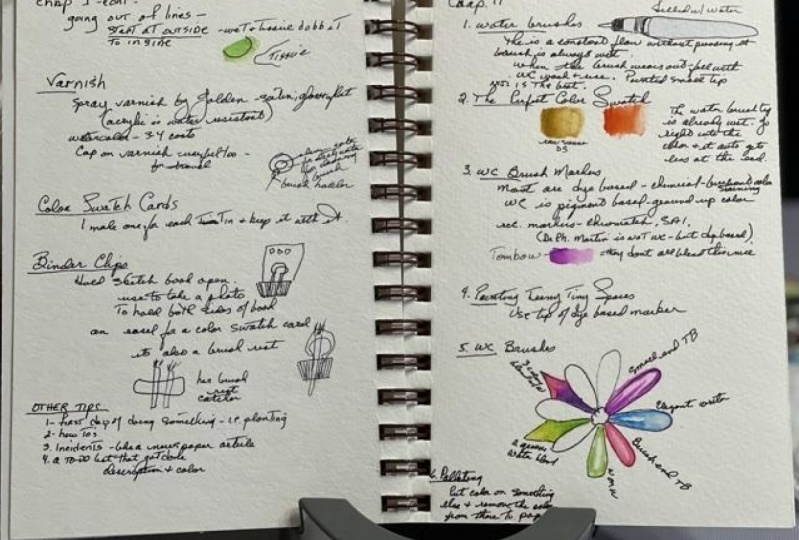 Chap 1 - cont.
going out of lines -
START AT OUTSIDE - wet + tissue dobb it
To inside
Tissue
Varnish
Spray varnish by Golden - satin, gloss, flat
(acrylic is water resistant)
watercolor - 3-4 coats
Cap on varnish
for travel
brush holder
Color Swatch Cards
I make one for each Tin + keep it with it.
Binder Clips
Hold sketch book open
use to take a photo
To hold both sides of book
an easel for a color swatch card
its also a brush rest
has brush
rest
catcher
OTHER TIPS
1- first day of doing something - i.e. planting
2- how to's
3. Incidents - like a newspaper article
4. a TO-DO list that got done
description + color
Chap. 11
filled w/ water
1. water brushes
This is a constant flow without pressing it
brush is always wet.
When the brush wears out - fill with
WC wash + use. Pointed small tip
is the best.
2. The Perfect Color Swatch
The water brush tip
is already wet. Go
right into the
color + it auto gets
less at the end.
3. WC Brush Markers
Most are dye based - chemical -
staining
WC is pigment based - ground up color
rec. markers -
(Dr. Ph. Martin is NOT WC - but dye based)
Tombow -
they don't all blend this nice
4. Painting Teeny Tiny Spaces
Use tip of dye based marker
5. WC Brushes
3 colors
blended
Small end TB
Elegant writer
Brush end TB
2 greens
water blend
6. Palleting
Put color on something
else + remove the color
from there to page